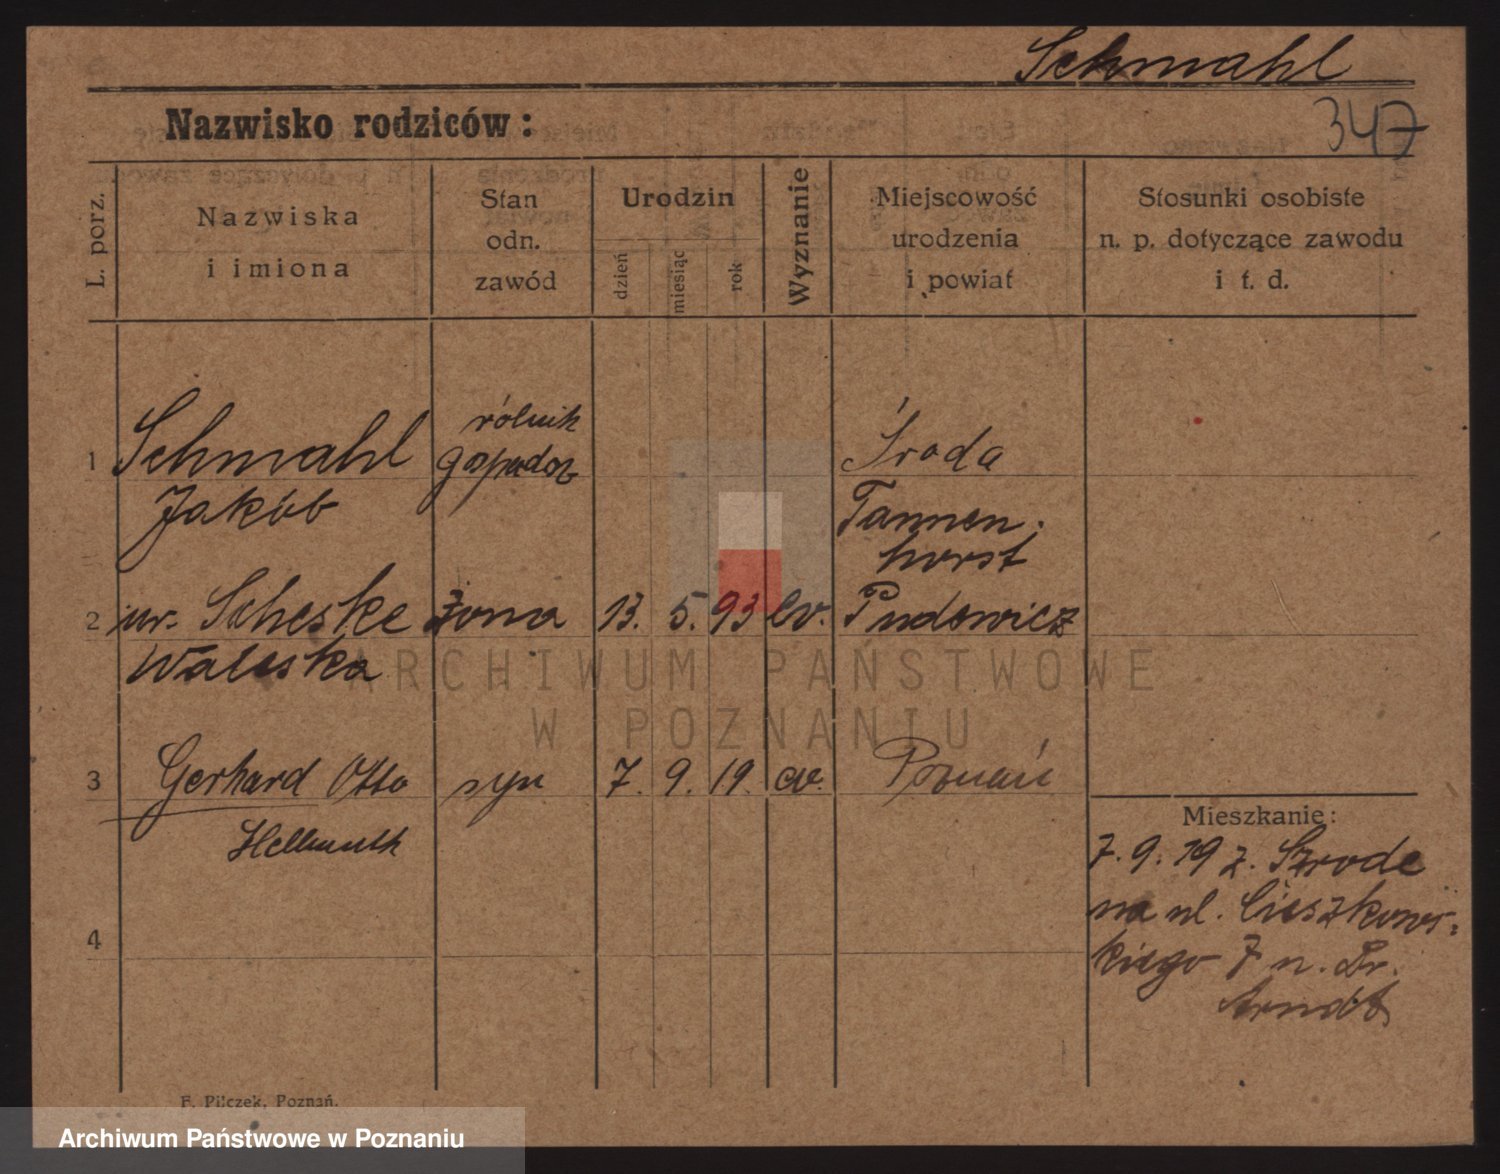 Schmahl
347
Nazwisko rodziców:
L. porz.
Nazwiska
i imiona
Stan
odn.
zawód
Urodzin
dzień
miesiąc
rok
Wyznanie
Miejscowość
urodzenia
i powiat
Stosunki osobiste
n. p. dotyczące zawodu
i t. d.
rólnik
1 Schmahl gospodar Środa
Jakób Tannen-
horst
2 ur. Scheske żona 13. 5. 93 ev. Pudewicz
Waleska
ARCHIWUM PAŃSTWOWE
W POZNANIU
3 Gerhard Otto syn 7. 9. 19. ev. Poznań
Hellmuth
Mieszkanie:
7. 9. 19 z. Szrode
na ul. Cieszkows-
kiego 7 n. Dr.
Arndt
4
F. Pilczek, Poznań.
Archiwum Państwowe w Poznaniu